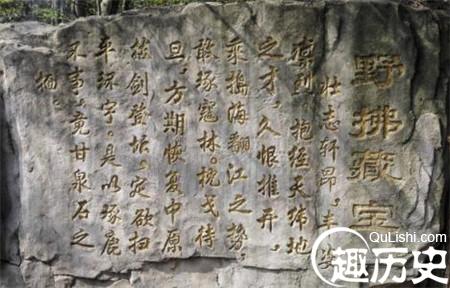 野拂藏宝
壮志轩昂，
凛列。抱经天纬地
之才，久恨推弃，
乘搗海翻江之势，
敢琢寇林。枕戈待
旦，方期恢复中原，
拔剑登坛，定欲扫
平环宇。是以琢鹿
不事，竟甘泉石之
栖。
QuLishi.com
趣历史